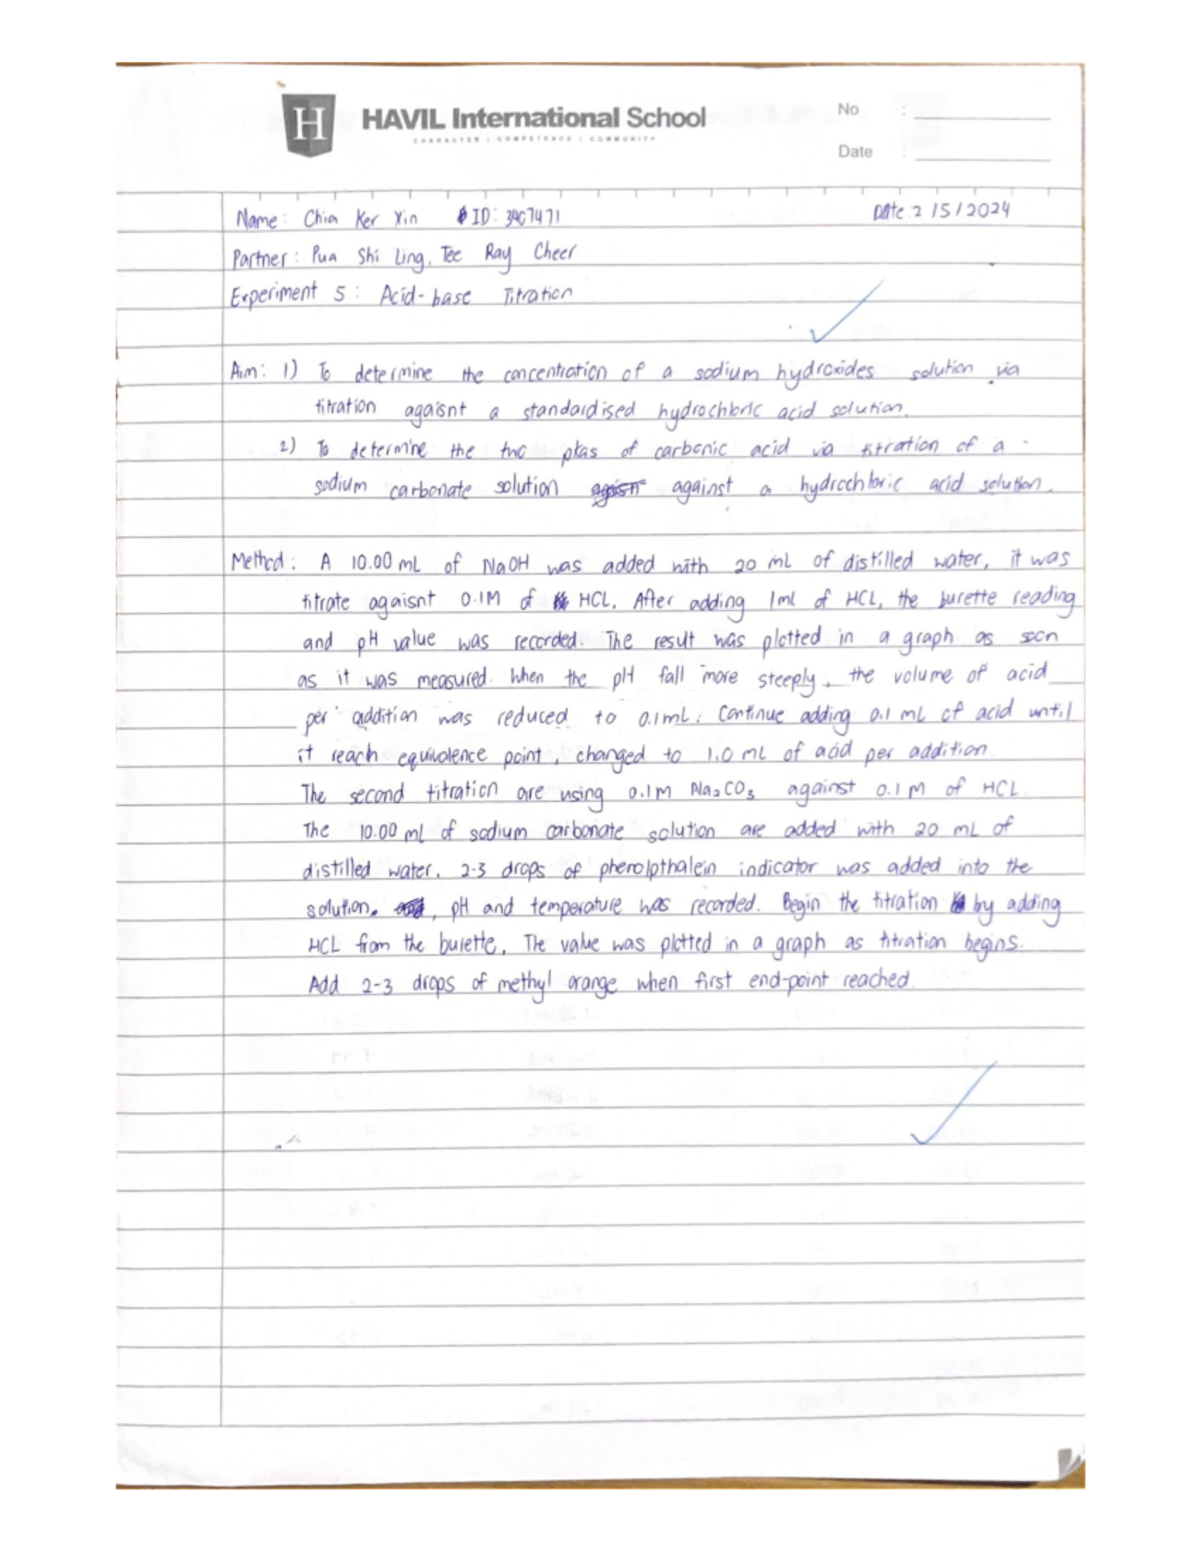 H HAVIL International School
CHARACTER | COMPETENCE | COMMUNITY
No :
Date :
Name: Chia Ker Xin ID: 3907471 Date: 2/5/2024
Partner: Pua Shi Ling, Tee Ray Cheer
Experiment 5: Acid-base Titration
Aim: 1) To determine the concentration of a sodium hydroxides solution via
titration agaisnt a standardised hydrochloric acid solution.
2) To determine the two pkas of carbonic acid via titration of a
sodium carbonate solution against a hydrochloric acid solution.
Method: A 10.00 mL of NaOH was added with 20 mL of distilled water, it was
titrate agaisnt 0.1M of HCL. After adding 1ml of HCL, the burette reading
and pH value was recorded. The result was plotted in a graph as soon
as it was measured. When the pH fall more steeply, the volume of acid
per addition was reduced to 0.1mL. Continue adding 0.1 mL of acid until
it reach equivalence point, changed to 1.0 mL of acid per addition.
The second titration are using 0.1M Na₂CO₃ against 0.1 M of HCL.
The 10.00 ml of sodium carbonate solution are added with 20 mL of
distilled water. 2-3 drops of phenolpthalein indicator was added into the
solution, pH and temperature was recorded. Begin the titration by adding
HCL from the burette. The value was plotted in a graph as titration begins.
Add 2-3 drops of methyl orange when first end-point reached.